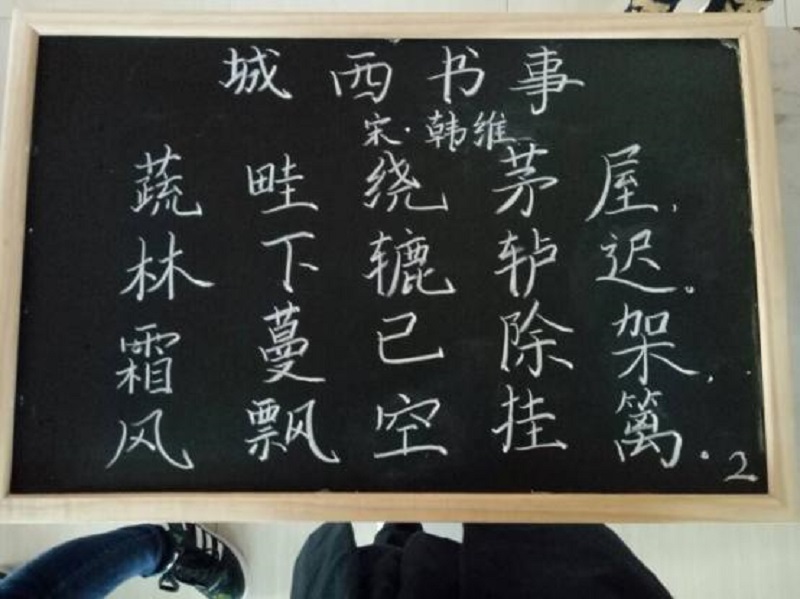 城西书事
宋·韩维
蔬畦绕茅屋,
林下辘轳迟。
霜蔓已除架,
风飘空挂篱.
2